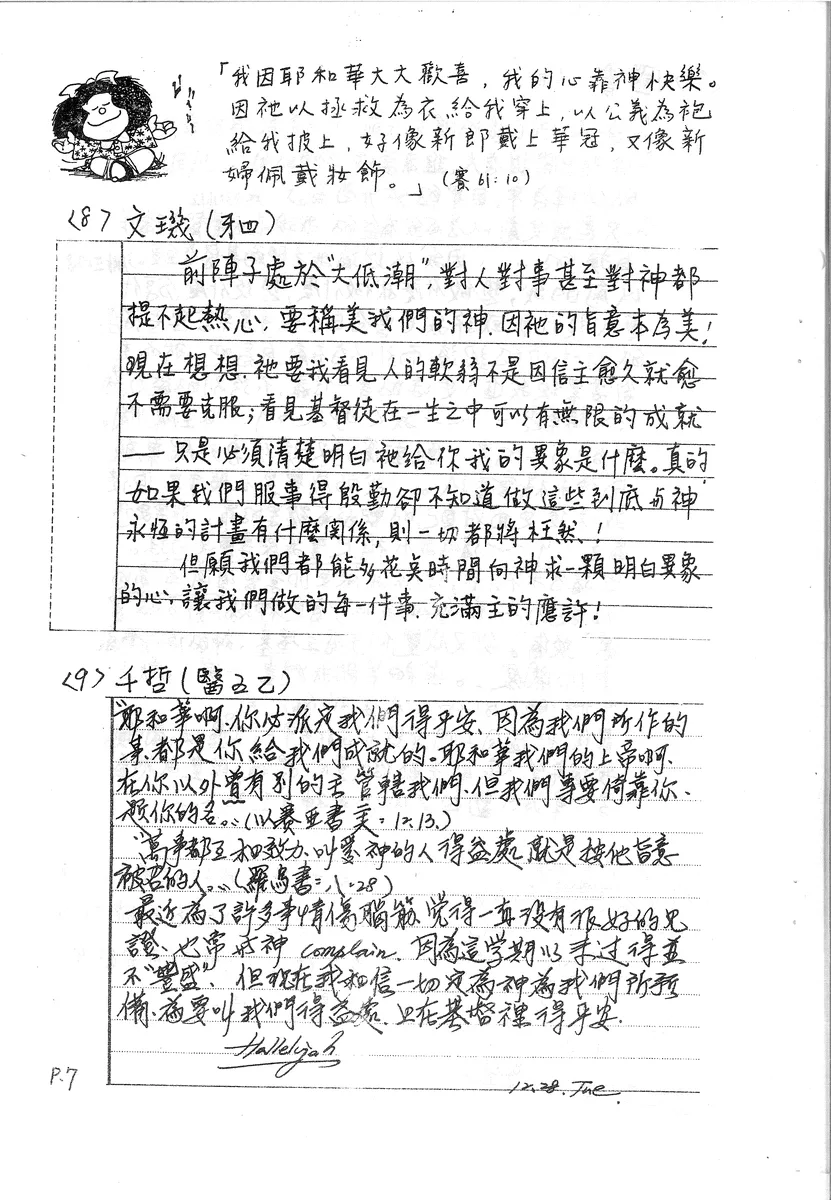 「我因耶和華大大歡喜，我的心靠神快樂。
因祂以拯救為衣給我穿上，以公義為袍
給我披上，好像新郎戴上華冠，又像新
婦佩戴妝飾。」（賽61:10）
〈8〉文璣（牙四）
前陣子處於"大低潮"，對人對事甚至對神都
提不起熱心，要稱美我們的神，因祂的旨意本為美！
現在想想，祂要我看見人的軟弱不是因信主愈久就愈
不需要克服；看見基督徒在一生之中可以有無限的成就
——只是必須清楚明白祂給你我的異象是什麼。真的，
如果我們服事得殷勤卻不知道做這些到底与神
永恆的計畫有什麼関係，則一切都將枉然！
但願我們都能多花矣時間向神求一顆明白異象
的心，讓我們做的每一件事，充滿主的應許！
〈9〉千哲（醫五乙）
"耶和華啊，你必派定我們得平安、因為我們所作的
事都是你給我們成就的。耶和華我們的上帝啊，
在你以外曾有別的主管轄我們、但我們專要倚靠你、
題你的名。"（以賽亞書 = 12.13.）
"萬事都互相效力、叫愛神的人得益處、就是按他旨意
被召的人。"（羅馬書=八:28）
最近為了許多事情傷腦筋，覚得一直没有很好的見
證、也常对神 complain、因為這学期以來过得並
不"豐盛"、但現在我相信一切定為神為我們所預
備、為要叫我們得益處、且在基督裡得平安.
Hallelujah
12.28. Tue.
P.7